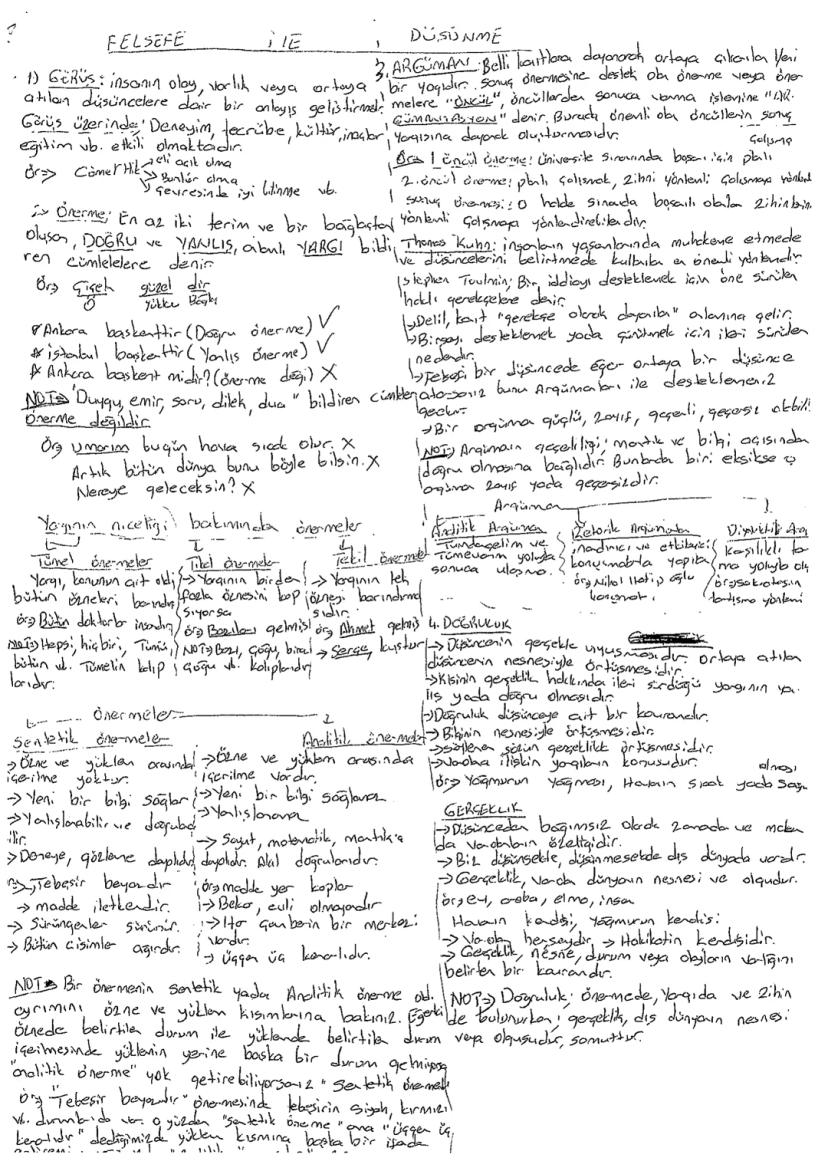 FELSEFE İLE DÜŞÜNME
1) GÖRÜŞ: insanın olay, varlık veya ortaya
atılan düşüncelere dair bir anlayış geliştirme
Görüş üzerinde; Deneyim, tecrübe, kültür, inançlar
eğitim vb. etkili olmaktadır.
Ör→ Cömertlik → eli açık olma
Bunlar olma
çevresinde iyi bilinme vb.
Önerme; En az iki terim ve bir bağlaçtan
oluşan, DOĞRU ve YANLIŞ, olan, YARGI bildi
ren cümlelere denir
Ör; Çiçek güzel dir
Ö yüklem Bağlaç
Ankara başkenttir (Doğru önerme) ✓
İstanbul başkenttir (Yanlış önerme) ✓
Ankara başkent midir? (önerme değil) X
NOT→ "Duygu, emir, soru, dilek, dua" bildiren cümleler
önerme değildir
Ör; Umarım bugün hava sıcak olur. X
Artık bütün dünya bunu böyle bilsin. X
Nereye geleceksin? X
Yargının niceliği bakımından önermeler
Tümel önermeler
Yargı, konunun ait olduğu
bütün özneleri barındırır
ör; Bütün doktorlar insandır
NOT→ Hepsi, hiçbiri, Tümü,
bütün vb. Tümelin kalıp
larıdır.
Tikel önermeler
→ Yargının birden
fazla öznesini kap
sıyorsa
ör; Bazıları gelmiş
NOT; Bazı, çoğu, biraz
çoğu vb. kalıplardır
Tekil önerme
→ Yargının tek
özneyi barındırma
sıdır.
ör; Ahmet gelmiş
→ Serçe, kuştur
Önermeler
Sentetik önermeler
→ Özne ve yüklem arasında
içerilme yoktur.
→ Yeni bir bilgi sağlar
→ Yanlışlanabilir ve doğrulanabi
lir.
→ Deneye, gözleme dayalıdır
→ Tebeşir beyazdır
→ madde iletkendir.
→ Sürüngenler sürünür.
→ Bütün cisimler ağırdır.
Analitik önermeler
→ Özne ve yüklem arasında
içerilme vardır.
→ Yeni bir bilgi sağlamaz
→ Yanlışlanamaz
→ Soyut, matematik, mantığa
dayalıdır. Akıl doğrularıdır.
ör; madde yer kaplar
→ Bekar, evli olmayandır
→ Her çemberin bir merkezi
vardır.
→ üçgen üç kenarlıdır.
NOT→ Bir önermenin sentetik yada Analitik önerme old.
ayrımını özne ve yüklem kısımlarına bakınız. Eğerki
öznede belirtilen durum ile yüklemde belirtilen durum
içerilmesinde yüklemin yerine başka bir durum gelmiyorsa
"analitik önerme" yok getirebiliyorsanız "sentetik önerme"
ör; "Tebeşir beyazdır" önermesinde tebeşirin siyah, kırmızı
vb. durumlarıda var. o yüzden "sentetik önerme" ama "üçgen üç
kenarlıdır" dediğimizde yüklem kısmına başka bir ifade
3. ARGÜMAN: Belli kanıtlara dayanarak ortaya çıkarılan Yeni
bir yargıdır. sonuç önermesine destek olan önerme veya öner
melere "ÖNCÜL", öncüllerden sonuca varma işlemine "AR
GÜMANTASYON" denir. Burada önemli olan öncüllerin sonuç
yargısına dayanak oluşturmasıdır.
Ör; 1. öncül önerme: üniversite sınavında başarı için planlı çalışma
2. öncül önerme: planlı çalışmak, zihni yönlendi çalışmaya yönlendi
sonuç önermesi: O halde sınavda başarılı olanlar zihinlerin
yönlendi çalışmaya yönlendirebilenlerdir.
Thomas Kuhn: insanların yaşamlarında muhakeme etmede
ve düşüncelerini belirtmede kullanılan en önemli yöntemdir
Stephen Toulmin; Bir iddiayı desteklemek için öne sürülen
haklı gerekçelere denir.
→ Delil, kanıt "gerekçe olarak dayanılan" anlamına gelir.
→ Birşeyi desteklemek yada çürütmek için ileri sürülen
nedendir.
→ Felsefi bir düşüncede eğer ortaya bir düşünce
atarsanız bunu Argümanları ile desteklemeniz
gerekir.
→ Bir argüman güçlü, zayıf, geçerli, geçersiz olabilir
NOT; Argümanın geçerliliği; mantık ve bilgi açısından
doğru olmasına bağlıdır. Bunlarda biri eksikse o
argüman zayıf yada geçersizdir.
Argüman
Analitik Argüman
Tümdengelim ve
Tümevarım yoluyla
sonuca ulaşma.
Retorik Argüman
inandırıcı ve etkileyici
konuşmalarla yapılan
ör; Nihal Hatipoğlu
konuşmaları.
Diyalektik Arg
Karşılıklı tar
ma yoluyla olan
ör; sokratesin
tartışma yöntemi
4. DOĞRULUK
→ Düşüncenin gerçekle uyuşmasıdır. ortaya atılan
düşüncenin nesnesiyle örtüşmesidir.
→ Kişinin gerçeklik hakkında ileri sürdüğü yargının yan
lış yada doğru olmasıdır.
→ Doğruluk düşünceye ait bir kavramdır.
→ Bilginin nesnesiyle örtüşmesidir.
→ söylenen sözün gerçeklikle örtüşmesidir.
→ varolana ilişkin yargıların konusudur.
ör; Yağmurun Yağması, Havanın sıcak yada soğuk olması
GERÇEKLİK
→ Düşünceden bağımsız olarak zamanda ve mekan
da varolanların özelliğidir.
→ Biz düşünsekte, düşünmesekte dış dünyada vardır.
→ Gerçeklik, varolan dünyanın nesnesi ve olgudur.
ör; ev, araba, elma, insan
Havanın kendisi, yağmurun kendisi
→ Varolan herşeydir, → Hakikatin kendisidir.
→ Gerçeklik, nesne, durum veya olayların varlığını
belirten bir kavramdır.
NOT→ Doğruluk; önermede, Yargıda ve zihin
de bulunurken; gerçeklik, dış dünyanın nesnesi
veya olgusudur, somuttur.